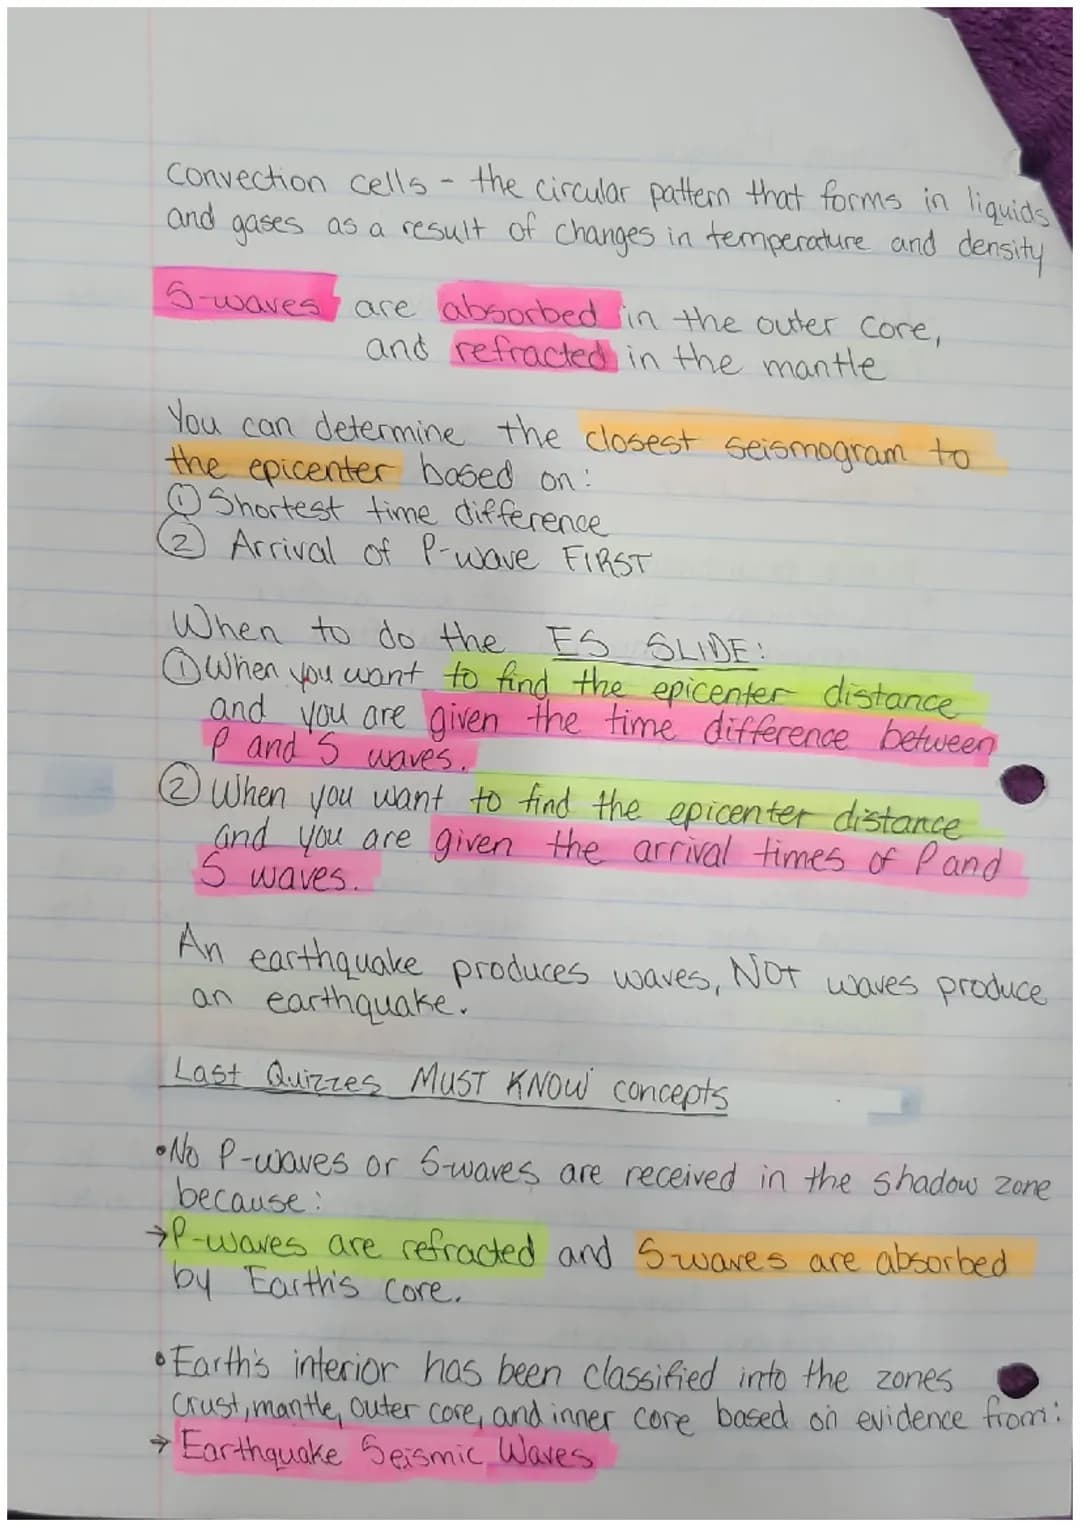 Convection cells - the circular pattern that forms in liquids
and gases as a result of changes in temperature and density
S-waves are absorbed in the outer core,
and refracted in the mantle
You can determine the closest seismogram to
the epicenter based on:
① Shortest time difference
② Arrival of P-wave FIRST
When to do the ES SLIDE:
① When you want to find the epicenter distance
and you are given the time difference between
P and S waves.
② When you want to find the epicenter distance
and you are given the arrival times of P and
S waves.
An earthquake produces waves, NOT waves produce
an earthquake.
Last Quizzes MUST KNOW concepts
•No P-waves or S-waves are received in the shadow zone
because:
→P-waves are refracted and S-waves are absorbed
by Earth's core.
•Earth's interior has been classified into the zones
crust, mantle, outer core, and inner core based on evidence from:
→ Earthquake Seismic Waves